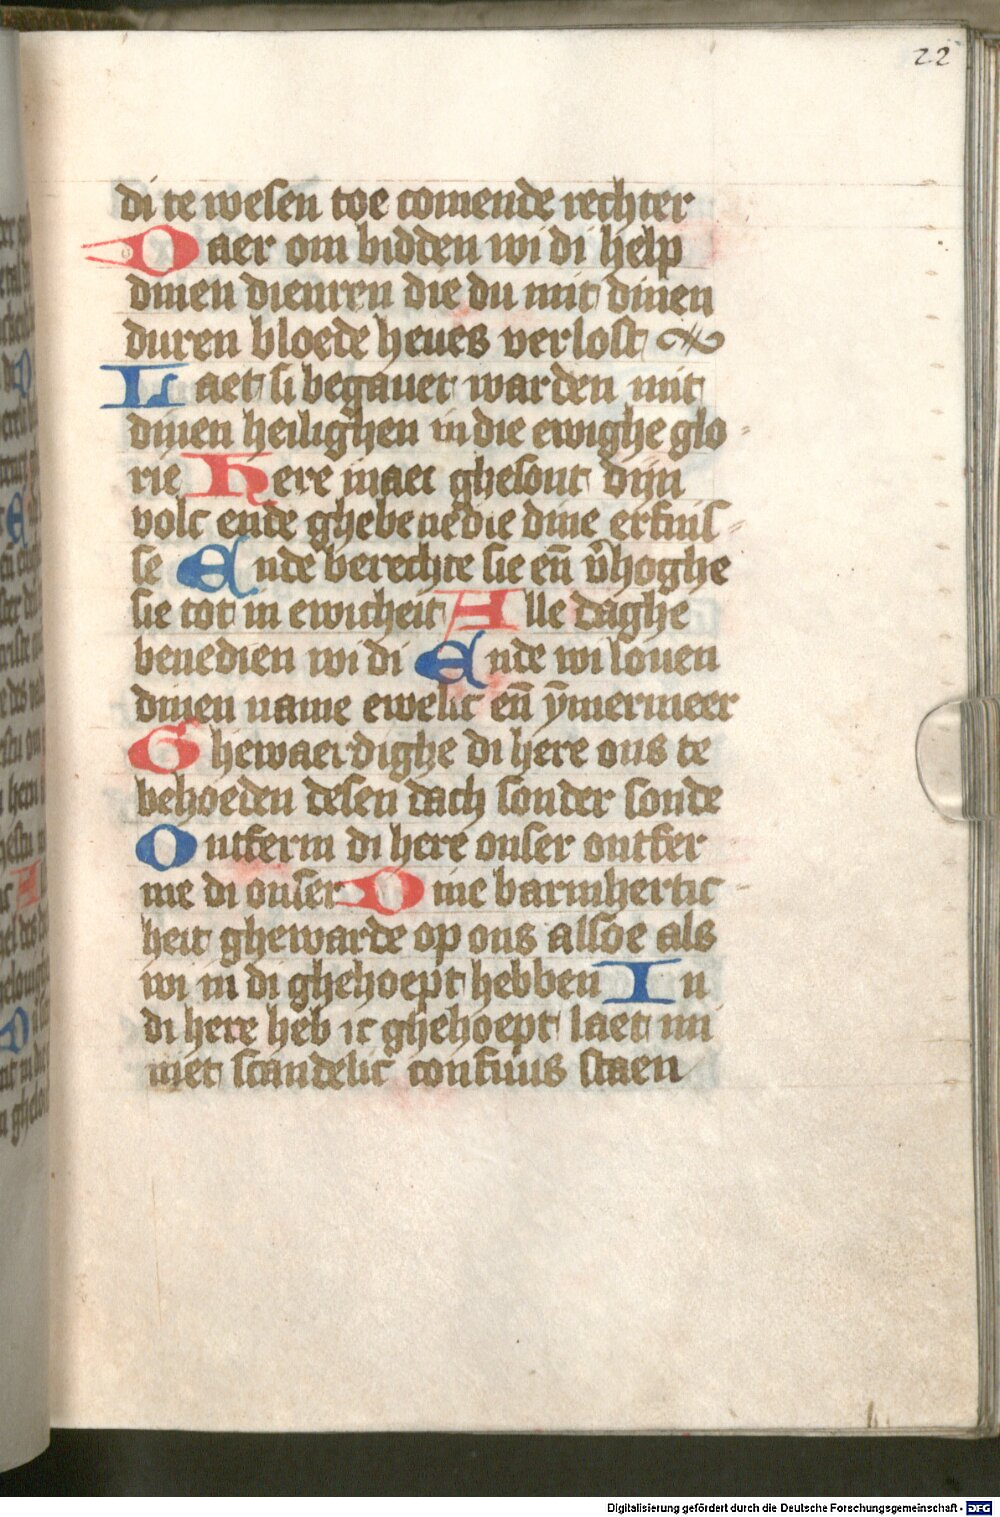 22
di te wesen toe comende rechter
Daer om bidden wi di help
dinen dienren die du mit dinen
duren bloede heues verlost
Laet si begauet warden mit
dinen heilighen in die ewighe glo
rie Here maec ghesont dijn
volc ende ghebenedie dine erfnis-
se Ende berechte sie en̄ v̄hoghe
sie tot in ewicheit Alle daghe
benedien wi di Ende wi louen
dinen name ewelic en̄ ȳmermeer
Ghewaerdighe di here ons te
behoeden desen dach sonder sonde
Ontferm di here onser ontfer
me di onser Dine barmhertic
heit ghewarde op ons alsoe als
wi in di ghehoept hebben In
di here heb ic ghehoept laet mi
niet scandelic confuus staen
Digitalisierung gefördert durch die Deutsche Forschungsgemeinschaft - DFG